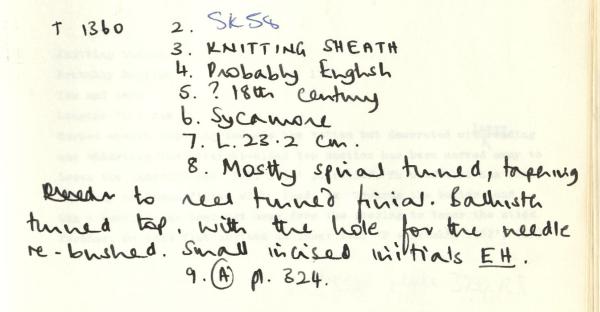 T 1360 2. SK58
3. KNITTING SHEATH
4. Probably English
5. ? 18th century
6. Sycamore
7. L. 23.2 cm.
8. Mostly spiral turned, tapering
to turned finial. Baluster
turned top, with the hole for the needle
re-bushed. Small incised initials EH.
9. A pl. 324.